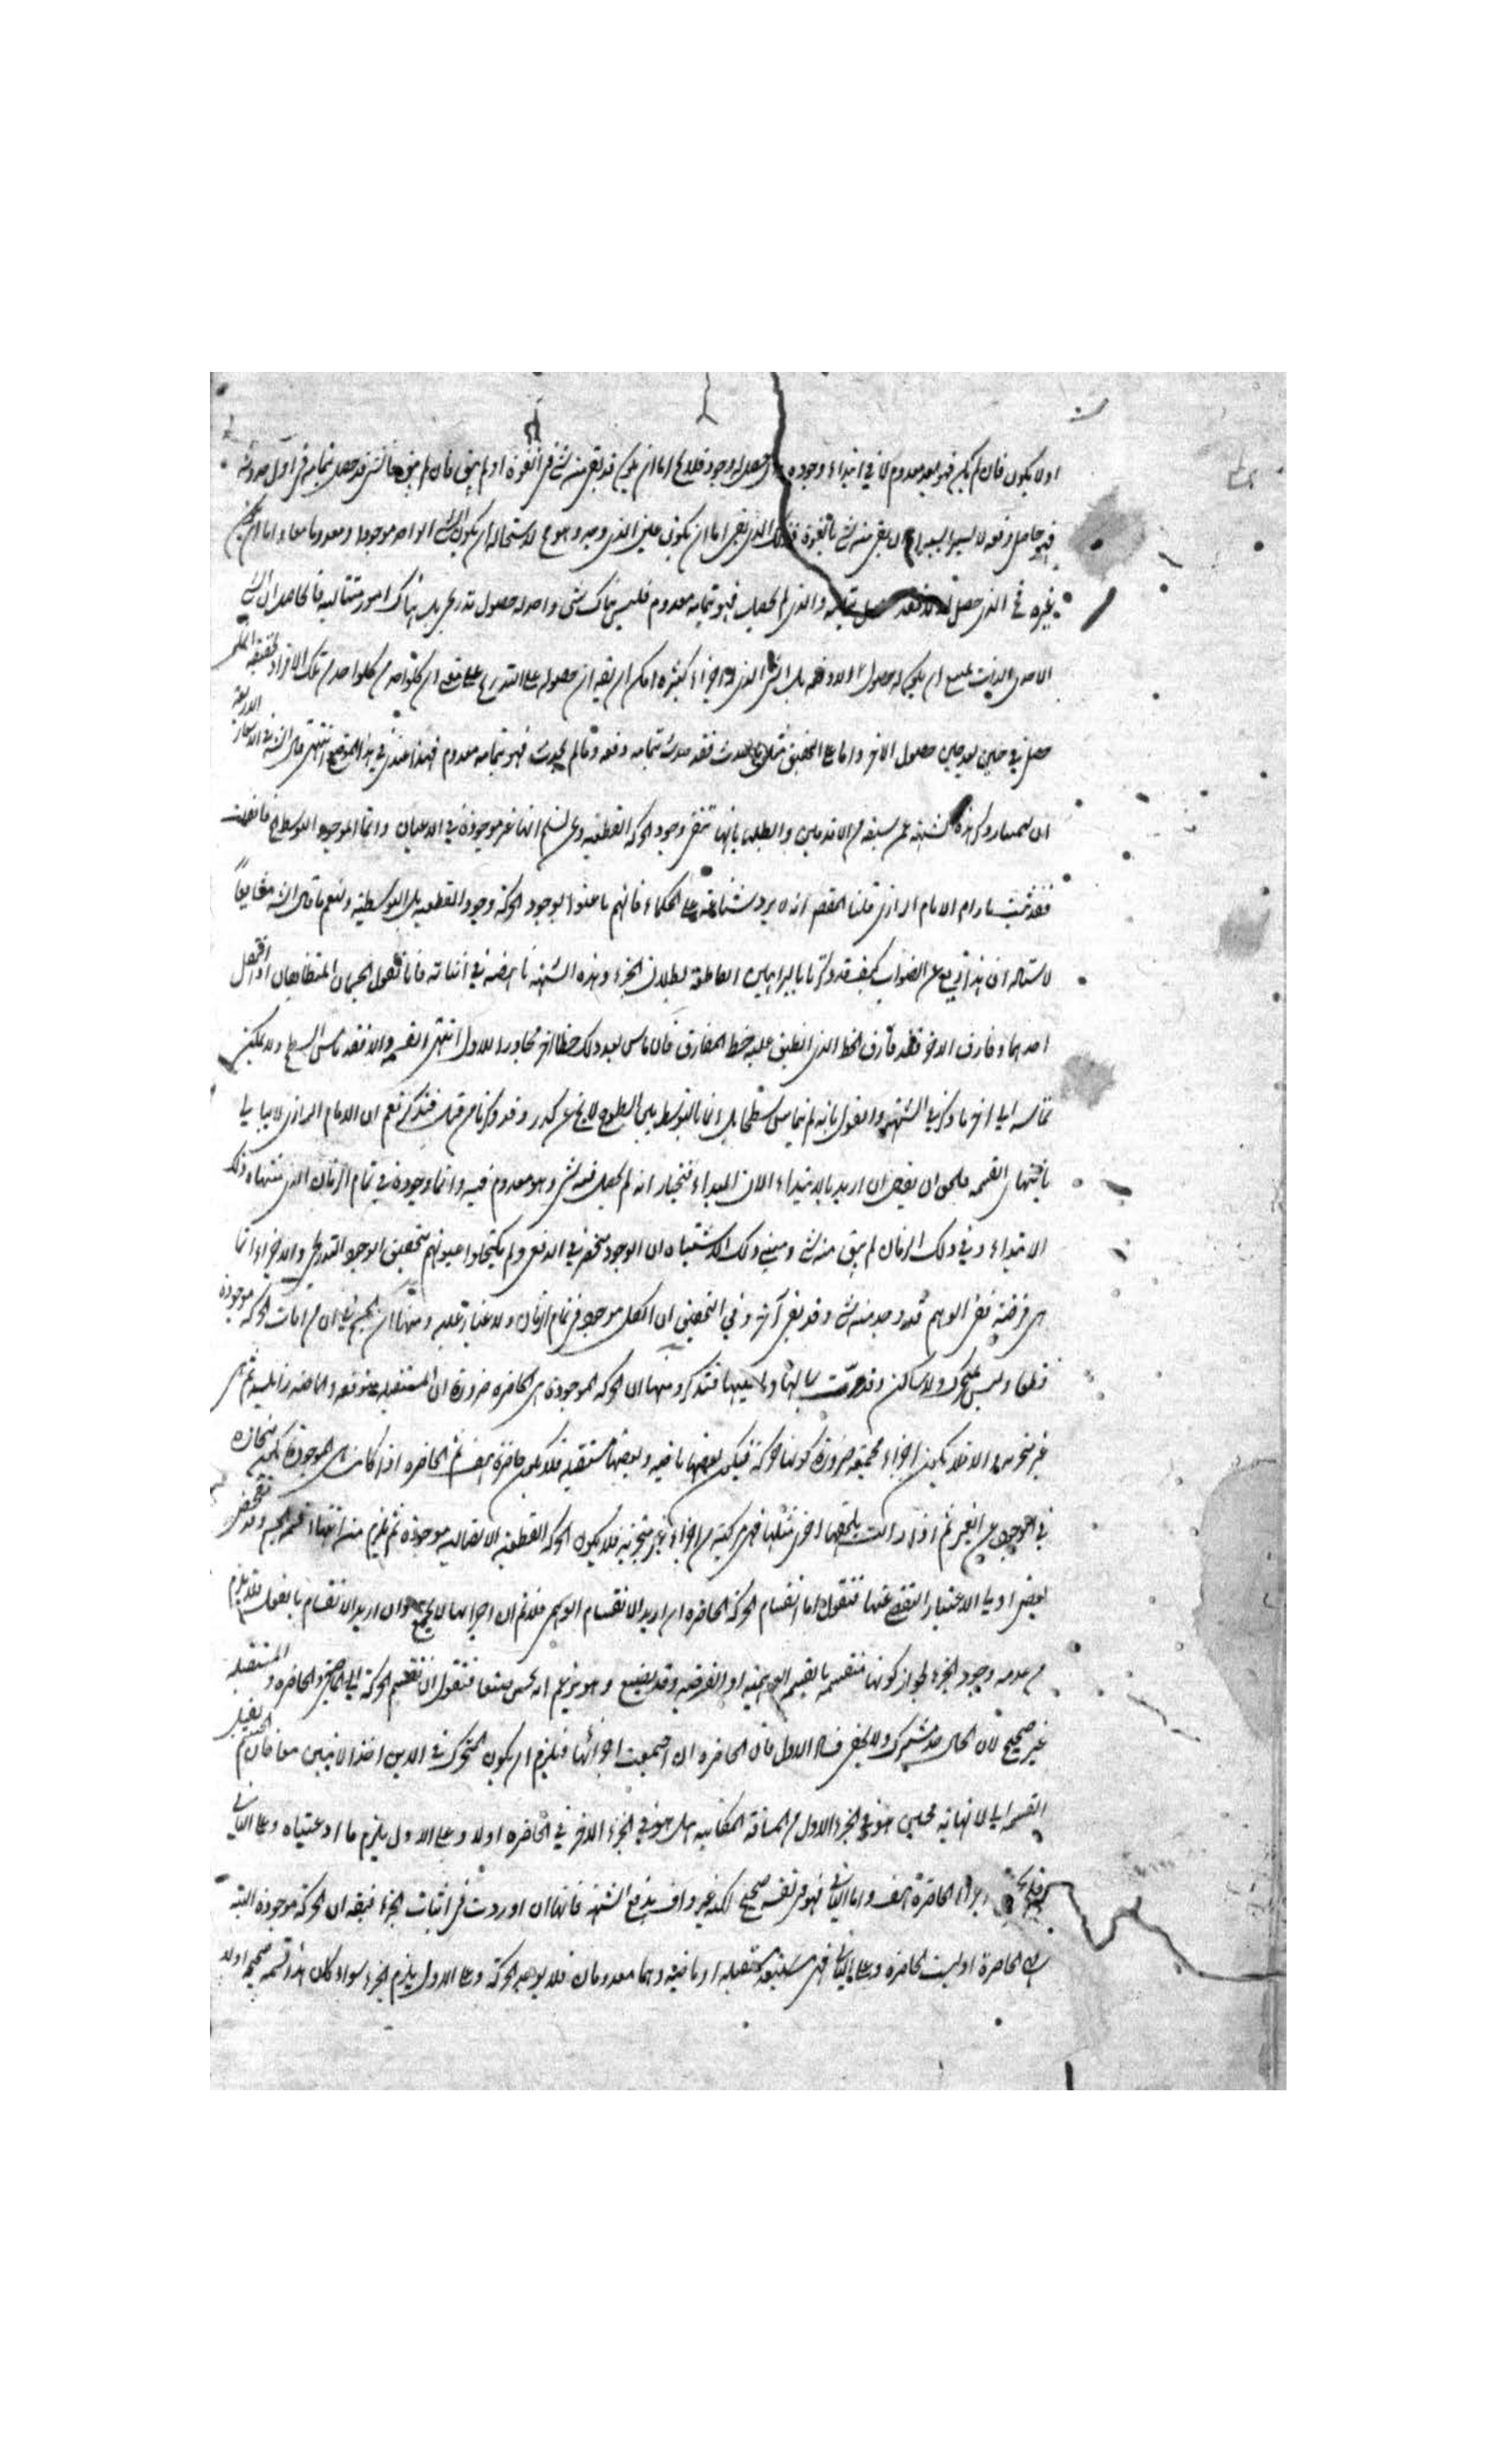 او لا يكون فان لم يكن فهو بعد معدوم لا في ابتداء وجوده وان حصل له وجود فلا يخ اما ان يكون قد بقي منه شئ في القوة او لم يبق فان لم يبق فالشئ قد حصل بتمامه في اول حدوثه
فهو حاصل دفعه لا يسيرا يسيرا وان بقي منه شئ بالقوة فذلك الذي بقي اما ان يكون عين الذي وجد وهو مح لاستحالة ان يكون الشئ الواحد موجودا ومعدوما معا واما ان يكون
غيره فح الذي حصل اولا فقد حصل بتمامه والذي لم يحصل فهو بتمامه معدوم فليس هناك شئ واحد له حصول تدريجي بل هناك امور متتالية فالحاصل ان الشئ
الاحدي الذات يمتنع ان يكون له حصول الا دفعه بل الشئ الذي له اجزاء كثيرة امكن ان يقه ان حصوله على التدريج على معنى ان كل واحد من تلك الافراد الحقيقية
حصل في حين بعد حين حصول الاخر واما على التحقيق فكل ما حدث فقد حدث بتمامه دفعه وما لم يحدث فهو بتمامه معدوم فهذا عندي في هذا الموضع انتهى قال الشه في الاسفار
ان بهمنيار ذكر هذه الشبهة عمن سبقه من الاقدمين وابطلها بانها تنفي وجود الحركة القطعيه ونحن نسلم انها غير موجودة في الاعيان وانما الموجود التوسط فان قلت
فقد ثبت مارام الامام الرازي قلنا المقص انه لا يرد شناعته على الحكماء فانهم ما عنوا بوجود الحركة وجود القطعيه بل التوسطية ولنعم ما قال الشه مخالفا
لاستاده ان هذا بعيد عن الصواب كيف وقد ذكرنا بالبراهين القاطعة بطلان الجزء وهذه الشبهة ناهضة في اثباته فانا نقول الجسمان المتطابقان اذا تحرك
احدهما وفارق الاخر فقد فارق الخط الذي انطبق عليه خط المفارق فان ماس بعد ذلك خطا اخر مجاورا للاول انتهى القسمة والا فقد ماس السطح ولا يمكن
تماسه الى اخر ما ذكر في الشبهة والقول بانه لم يماس سطحا بل انما التوسط بين السطوح لا يخ عن كدر وقد ذكرنا من قبل فتذكر نعم ان الامام الرازي لا يبالي
بانتهاء القسمة فالحق ان يقه ان اريد بالابتداء الان المبدا فنختار انه لم يحصل فيه شئ وهو معدوم فيه وانما وجوده في تمام الزمان الذي منتهاه ذلك
الابتداء وفي ذلك الزمان لم يبق منه شئ ومبنى ذلك الاشتباه ان الوجود منحصر في الدفعي ولم يكتحلوا عيونهم بتحقيق الوجود التدريجي والاجزاء انما
هي فرضية ففي الوهم قد وجد منه شئ وقد بقي آخر وفي التحقيق ان الكل موجود في تمام الزمان ولا غبار عليه ومنها ان الجسم في آن من آنات الحركة موجودة
قطعا وليس بمتحرك ولا ساكن وقد مرت بمالها وما عليها فتذكر ومنها ان الحركة الموجودة هي الحاضرة ضرورة ان المستقبلة متوقعه والماضيه زائلة ثم هي
غير متجزية والا فلا يكون اجزاء مجتمعة ضرورة كونها حركة فيكون بعضها ماضيه وبعضها مستقبلة فلا تكون حاضرة هف ثم الحاضرة اذا كانت هي الموجودة تكون منحازة
في الوجود عن الغير ثم اذا زالت يلحقها اخرى مثلها فهي مركبة من اجزاء غير متجزية فلا يكون الحركة القطعية الاتصالية موجودة ثم يلزم منه انتهاء قسمة الجسم
فنقول اما انقسام الحركة الحاضرة ان اريد الانقسام الوهمي فلا نم ان اجزائها لا تجتمع وان اريد الانقسام بالفعل فلا يلزم
من عدمه وجود الجزء لجواز كونها منقسمه بالقسمة الوهمية او الفرضيه فنقول ان تقسيم الحركة الى الماضي والحاضرة والمستقبلة
غير صحيح لان الحال حد مشترك ولا يخفى فساد الاول فان الحاضرة ان اجتمعت اجزائها فيلزم ان يكون المتحرك في الاين اخذ الاينين معا فان الجسم يقبل
القسمة الى لا نهاية فحين هو في الجزء الاول من المسافة المكانيه هل هو في الجزء الاخر في الحاضرة او لا وعلى الاول يلزم ما ادعيناه وعلى الثاني
اجزاء الحاضرة هف واما الثاني فهو في نفسه صحيح لكنه غير واف بدفع الشبهة فانها ان اوردت في اثبات الجزء فيقه ان الحركة موجودة البتة
اما هي الحاضرة او ليست بحاضرة وعلى الثاني فهي مستقبلة او ماضيه وهما معدومان فلا يوجد الحركة وعلى الاول يلزم الجزء سواء كان هذا قسمه صحيحا اولا